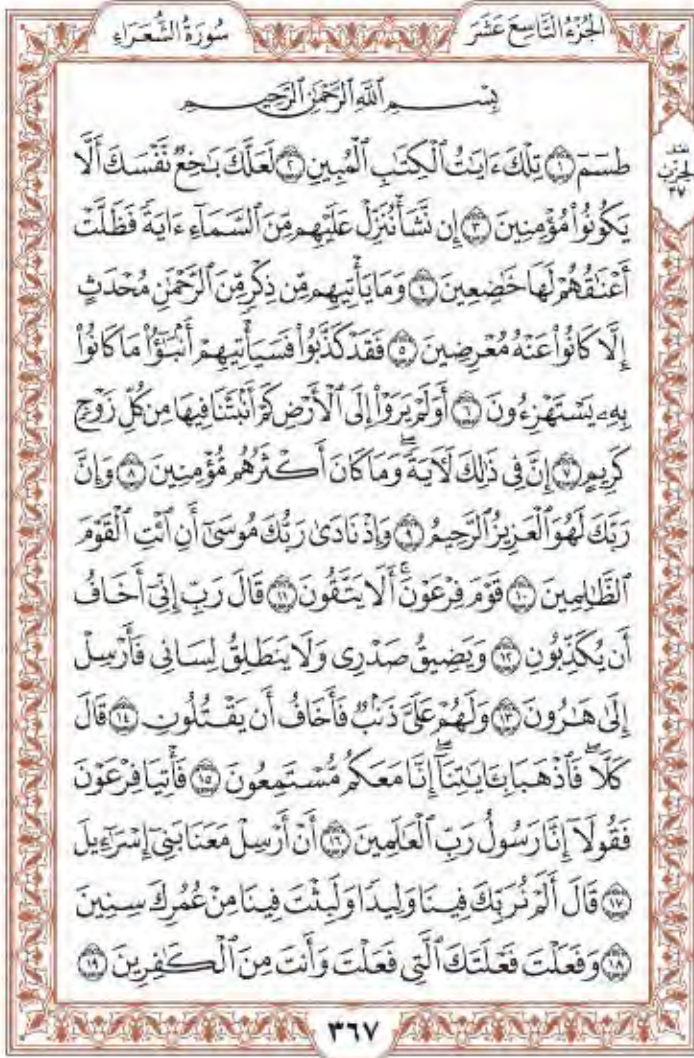 سُورَةُ الشُّعَرَاءِ
الجُزْءُ التَّاسِعَ عَشَرَ
بِسْمِ ٱللَّهِ ٱلرَّحْمَٰنِ ٱلرَّحِيمِ
طسٓمٓ ١ تِلْكَ ءَايَٰتُ ٱلْكِتَٰبِ ٱلْمُبِينِ ٢ لَعَلَّكَ بَٰخِعٌ نَّفْسَكَ أَلَّا
يَكُونُوا۟ مُؤْمِنِينَ ٣ إِن نَّشَأْ نُنَزِّلْ عَلَيْهِم مِّنَ ٱلسَّمَآءِ ءَايَةً فَظَلَّتْ
أَعْنَٰقُهُمْ لَهَا خَٰضِعِينَ ٤ وَمَا يَأْتِيهِم مِّن ذِكْرٍ مِّنَ ٱلرَّحْمَٰنِ مُحْدَثٍ
إِلَّا كَانُوا۟ عَنْهُ مُعْرِضِينَ ٥ فَقَدْ كَذَّبُوا۟ فَسَيَأْتِيهِمْ أَنۢبَٰٓؤُا۟ مَا كَانُوا۟
بِهِۦ يَسْتَهْزِءُونَ ٦ أَوَلَمْ يَرَوْا۟ إِلَى ٱلْأَرْضِ كَمْ أَنۢبَتْنَا فِيهَا مِن كُلِّ زَوْجٍ
كَرِيمٍ ٧ إِنَّ فِى ذَٰلِكَ لَءَايَةً ۖ وَمَا كَانَ أَكْثَرُهُم مُّؤْمِنِينَ ٨ وَإِنَّ
رَبَّكَ لَهُوَ ٱلْعَزِيزُ ٱلرَّحِيمُ ٩ وَإِذْ نَادَىٰ رَبُّكَ مُوسَىٰٓ أَنِ ٱئْتِ ٱلْقَوْمَ
ٱلظَّٰلِمِينَ ١٠ قَوْمَ فِرْعَوْنَ ۚ أَلَا يَتَّقُونَ ١١ قَالَ رَبِّ إِنِّىٓ أَخَافُ
أَن يُكَذِّبُونِ ١٢ وَيَضِيقُ صَدْرِى وَلَا يَنطَلِقُ لِسَانِى فَأَرْسِلْ
إِلَىٰ هَٰرُونَ ١٣ وَلَهُمْ عَلَىَّ ذَنۢبٌ فَأَخَافُ أَن يَقْتُلُونِ ١٤ قَالَ
كَلَّا ۖ فَٱذْهَبَا بِـَٔايَٰتِنَآ ۖ إِنَّا مَعَكُم مُّسْتَمِعُونَ ١٥ فَأْتِيَا فِرْعَوْنَ
فَقُولَآ إِنَّا رَسُولُ رَبِّ ٱلْعَٰلَمِينَ ١٦ أَنْ أَرْسِلْ مَعَنَا بَنِىٓ إِسْرَٰٓءِيلَ
١٧ قَالَ أَلَمْ نُرَبِّكَ فِينَا وَلِيدًا وَلَبِثْتَ فِينَا مِنْ عُمُرِكَ سِنِينَ
١٨ وَفَعَلْتَ فَعْلَتَكَ ٱلَّتِى فَعَلْتَ وَأَنتَ مِنَ ٱلْكَٰفِرِينَ ١٩
الحِزْب
٣٧
٣٦٧